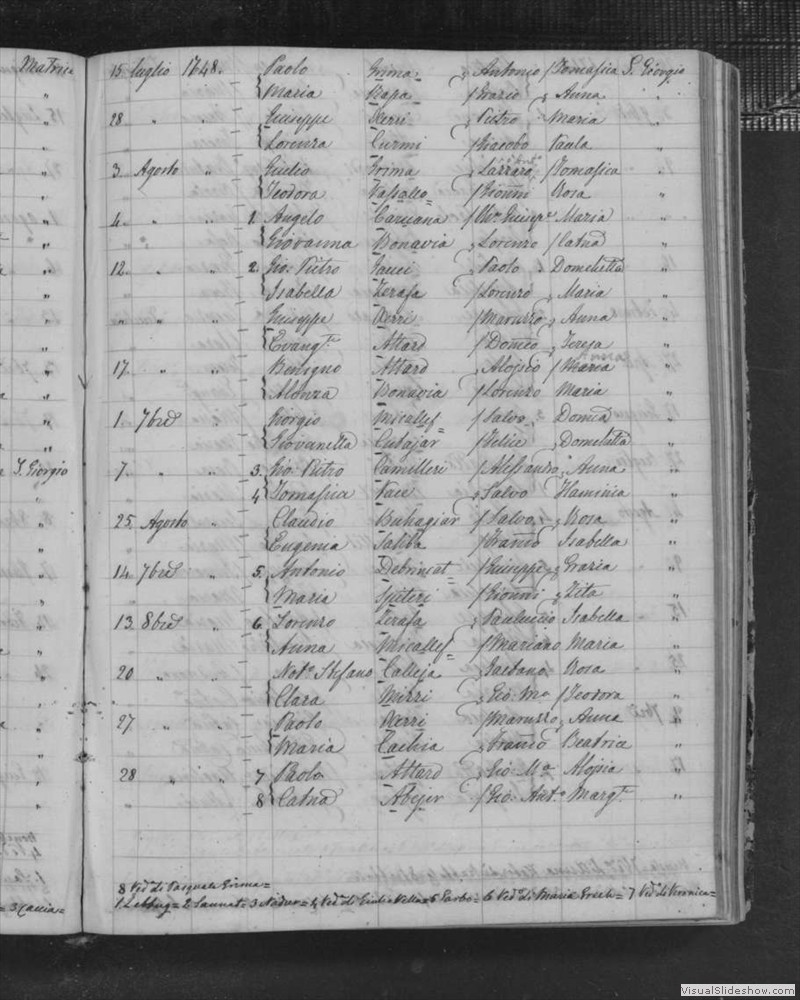 Matrice
15 luglio 1748. Paolo Grima Antonio Tomasica S. Giorgio
Maria Rapa Grazio Anna "
28 " " Giuseppe Xerri Pietro Maria "
Lorenza Curmi Giacobo Paula "
3 Agosto " Giulio Grima Lazzaro Tomasica "
Teodora Vassallo Gionni Rosa "
4 " " 1. Angelo Caruana Giusep.e Maria "
Giovanna Bonavia Lorenzo Catnã "
12. " " 2. Gio: Pietro Pace Paolo Domchetta "
Isabella Zerafa Lorenzo Maria "
" " Giuseppe Xerri Maruzzo Anna "
Evang.ta Attard Domco Teresa "
17. " " Benigno Attard Aloiseo Maria "
Alonza Bonavia Lorenzo Maria "
1. 7bre Giorgio Micallef Salvo Domca "
Giovanella Cutajar Felice Domchetta "
S. Giorgio
7. " " 3. Gio: Pietro Camilleri Alessandro Anna "
4 Tomasica Pace Salvo Flaminia "
25. Agosto " Claudio Buhagiar Salvo Rosa "
Eugenia Saliba Franco Isabella "
14. 7bre " 5. Antonio Debrincat Giuseppe Grazia "
Maria Spiteri Gionni Zita "
13. 8bre " 6. Lorenzo Zerafa Pauluccio Isabella "
Anna Micallef Mariano Maria "
20 " " Not.o Stefano Calleja Gaetano Rosa "
Clara Mizzi Gio: Ma Teodora "
27 " " Paolo Xerri Maruzzo Anna "
Maria Cachia Franco Beatrice "
28 " " 7 Paolo Attard Gio: Ma Aloisia "
8 Catnã Abejer Gio: Ant.o Marg.ta "
8 Ved.a di Pasquale Grima=
= 3 Caccia=
1 Zebbug= 2 Sannat= 3 Nadur= 4 Ved.a di Giulio Vella= 5 Garbo= 6 Ved.o di Maria Grech= 7 Ved.o di Veronica=
VisualSlideshow.com